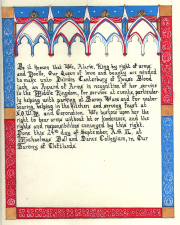 Be it known that We, Alaric, King by right of arms
and Noelle, Our Queen of love and beauty are minded
to make unto Deirdre Canterbury of Swans Blood
Loch, an Award of Arms in recognition of her service
to the Middle Kingdom, for service at events, particularly
by helping with parking at Baron Wars and for water
bearing, helping in the kitchen and serving feast at
R.U.M. and Coronation. We bestow upon her the
right to bear arms without let or hinderance, and the
rights and responsibilities conveyed by this right.
Done this 24th day of September, A.S. XL, at
Michaelmas Ball and Dance Collegium, in Our
Barony of Cleftlands.